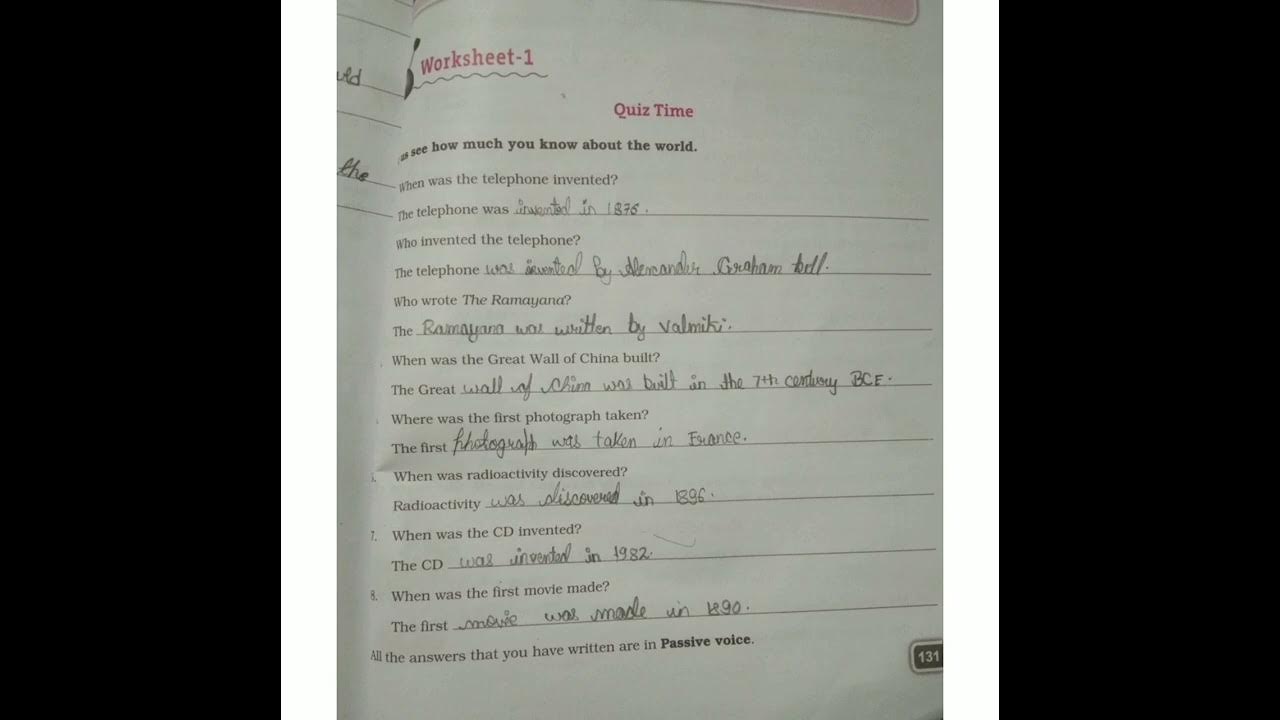 Worksheet-1
Quiz Time
us see how much you know about the world.
When was the telephone invented?
The telephone was invented in 1876.
Who invented the telephone?
The telephone was invented by Alexander Graham bell.
Who wrote The Ramayana?
The Ramayana was written by Valmiki.
When was the Great Wall of China built?
The Great wall of China was built in the 7th century BCE.
Where was the first photograph taken?
The first photograph was taken in France.
When was radioactivity discovered?
Radioactivity was discovered in 1896.
7. When was the CD invented?
The CD was invented in 1982.
8. When was the first movie made?
The first movie was made in 1890.
All the answers that you have written are in Passive voice.
131
the